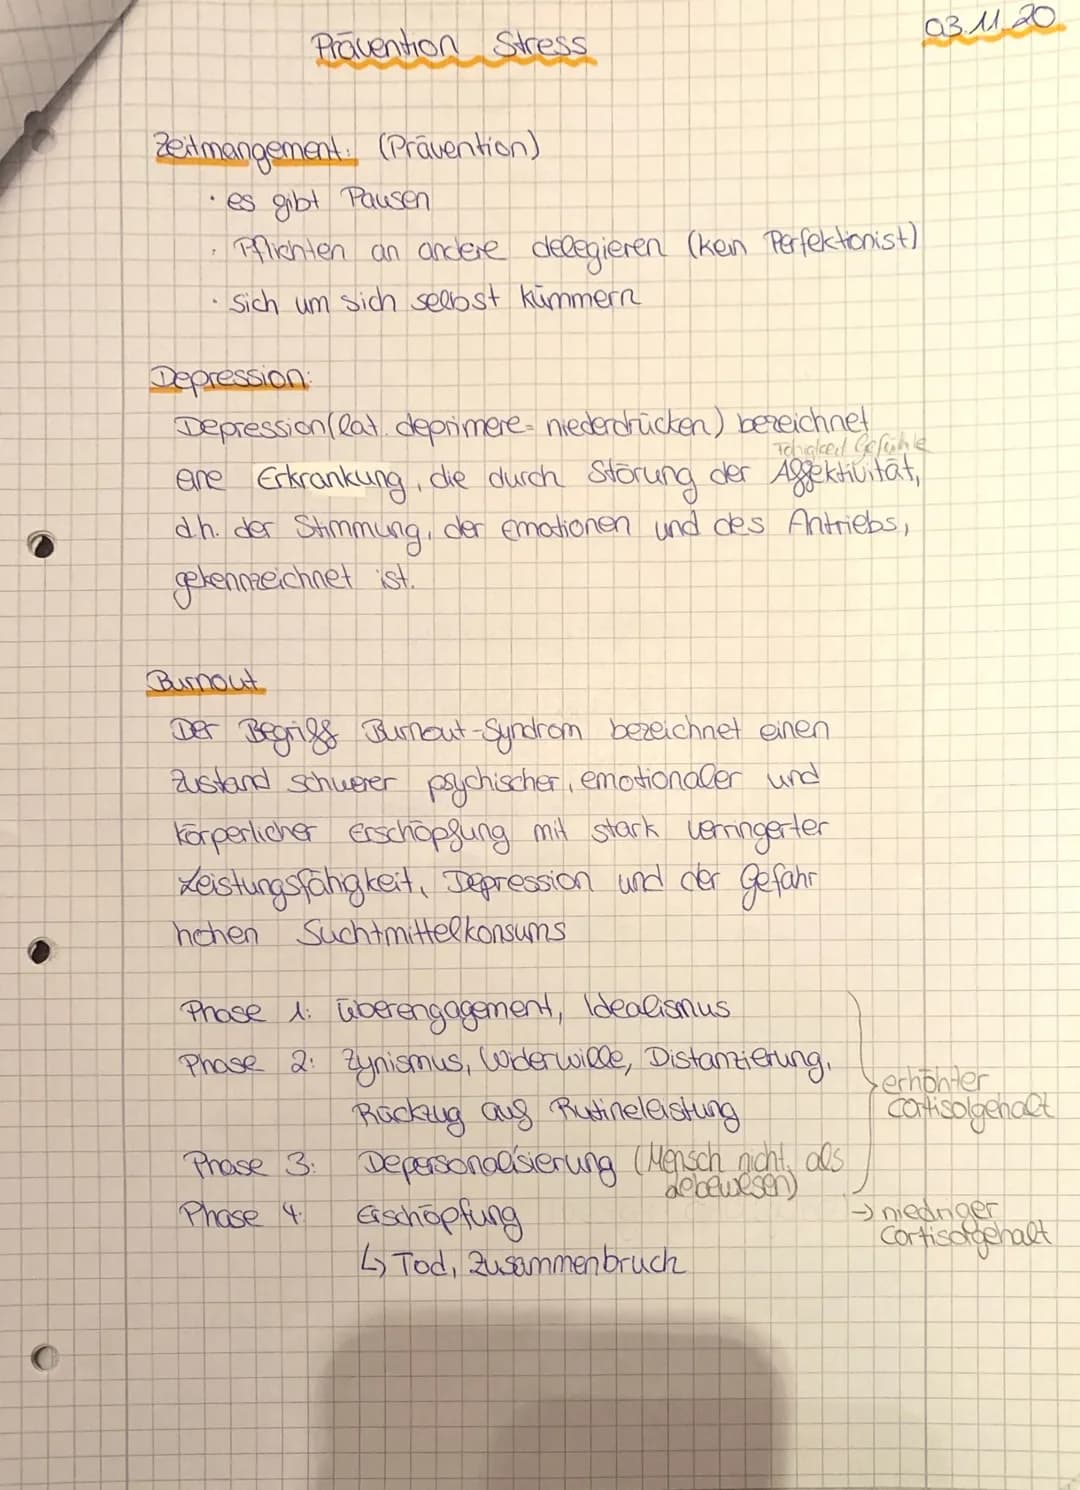 03.11.20
Prävention Stress
Zeitmangement: (Prävention)
· es gibt Pausen
· Pflichten an andere delegieren (kein Perfektionist)
· sich um sich selbst kümmern
Depression:
Depression (lat. deprimere = niederdrücken) bezeichnet
Gefühle
eine Erkrankung, die durch Störung der Affektivität,
d.h. der Stimmung, der Emotionen und des Antriebs,
gekennzeichnet ist.
Burnout
Der Begriff Burnout-Syndrom bezeichnet einen
Zustand schwerer psychischer, emotionaler und
körperlicher Erschöpfung mit stark verringerter
Leistungsfähigkeit, Depression und der Gefahr
hohen Suchtmittelkonsums
Phase 1: Überengagement, Idealismus
Phase 2: Zynismus, Widerwille, Distanzierung,
Rückzug aus Rutineleistung
erhöhter
Cortisolgehalt
Phase 3: Depersonalisierung (Mensch nicht als
Lebewesen)
Phase 4: Erschöpfung
→ niedriger
Cortisolgehalt
↳ Tod, Zusammenbruch